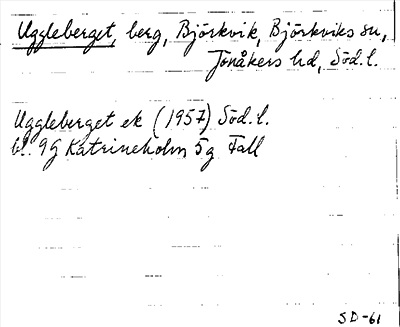 Uggleberget, berg, Björkvik, Björkviks sn,
Jonåkers hd, Söd. l.
Uggleberget ek (1957) Söd. l.
bl. 9G Katrineholm 5g Fall
SD-61